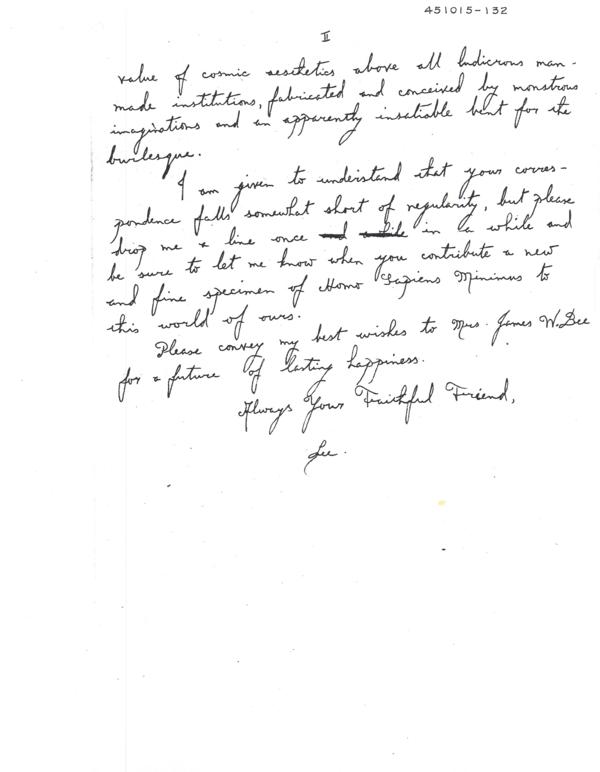 451015-132
II
value of cosmic aesthetics above all ludicrous man-
made institutions, fabricated and conceived by monstrous
imaginations and an apparently insatiable bent for the
burlesque.
I am given to understand that your corres-
pondence falls somewhat short of regularity, but please
drop me a line once in a while and
be sure to let me know when you contribute a new
and fine specimen of Homo Sapiens Minimus to
this world of ours.
Please convey my best wishes to Mrs. James W. Bee
for a future of lasting happiness.
Always Your Faithful Friend,
Lee.